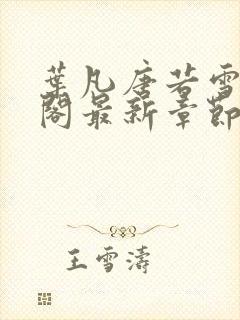 葉凡唐若雪
閣最新章節
王雪濤